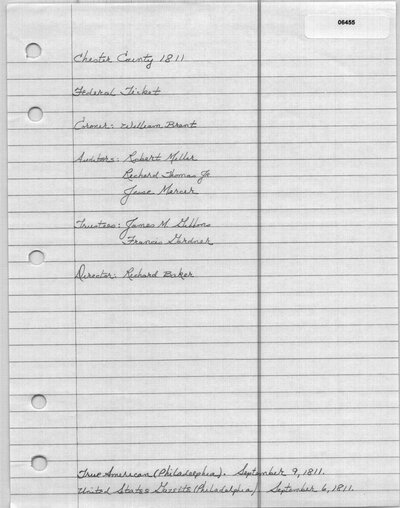 06455
Chester County 1811
Federal Ticket
Coroner: William Brant
Auditors: Robert Miller
Richard Thomas Jr
Jesse Mercer
Trustees: James M. Gibbons
Francis Gardner
Director: Richard Baker
True American (Philadelphia). September 9, 1811.
United States Gazette (Philadelphia). September 6, 1811.